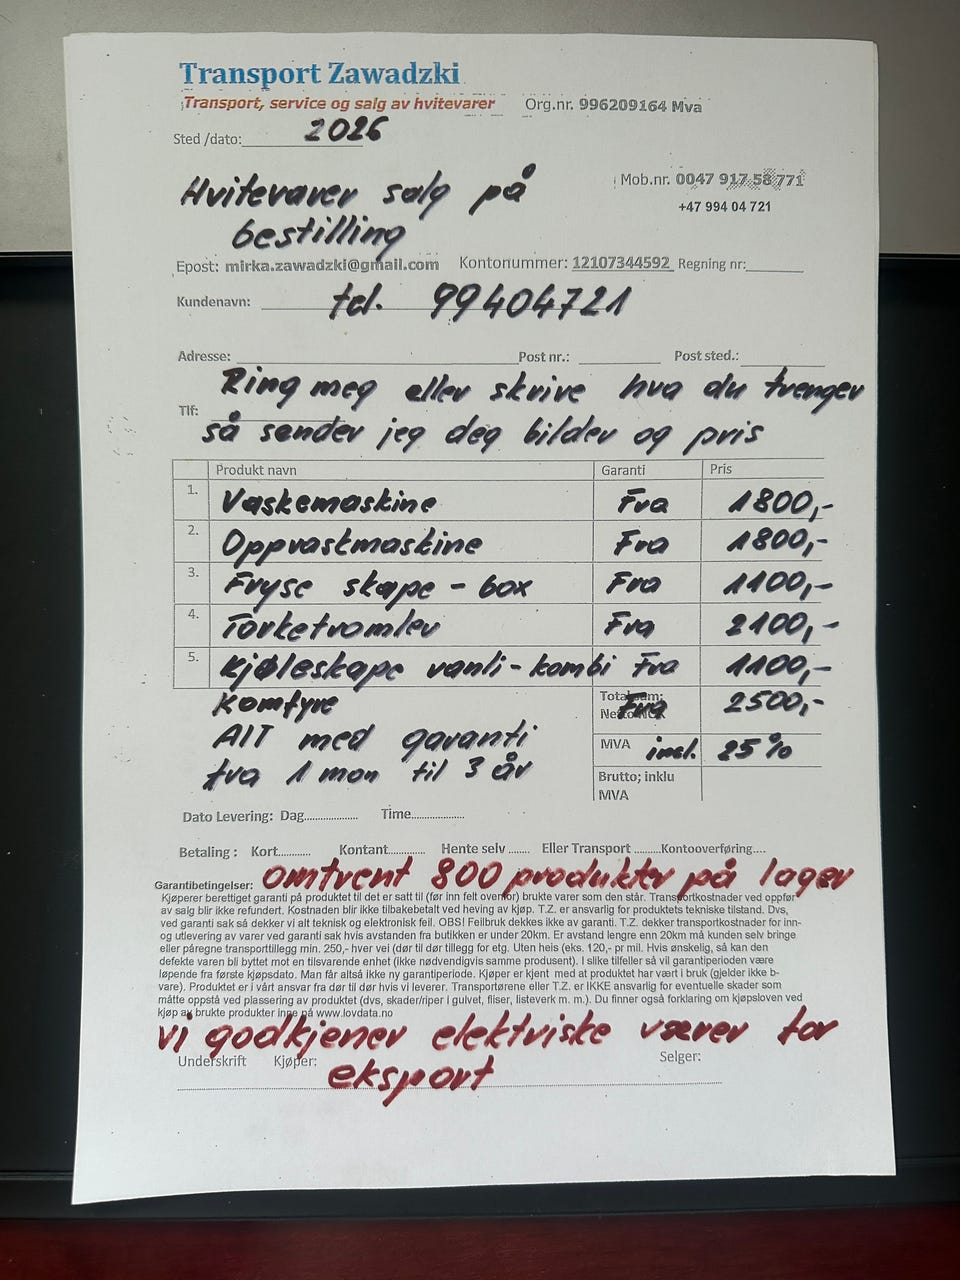 Transport Zawadzki
Transport, service og salg av hvitevarer Org.nr. 996209164 Mva
Sted /dato: 2026
Mob.nr. 0047 917 58 771
Hvitevarer salg på
+47 994 04 721
bestilling
Epost: mirka.zawadzki@gmail.com Kontonummer: 12107344592 Regning nr:
Kundenavn: tel. 99404721
Adresse: Post nr.: Post sted.:
Ring meg eller skrive hva du trenger
Tlf:
så sender jeg deg bilder og pris
Produkt navn Garanti Pris
1. Vaskemaskine Fra 1800,-
2. Oppvastmaskine Fra 1800,-
3. Fryse skape - box Fra 1100,-
4. Torketromler Fra 2100,-
5. Kjøleskape vanli - kombi Fra 1100,-
Komfyre Total sum; Fra 2500,-
Netto NOK
Alt med garanti MVA incl. 25%
fra 1 mon til 3 år
Brutto; inklu
MVA
Dato Levering: Dag.................. Time..................
Betaling : Kort........... Kontant........... Hente selv ....... Eller Transport .........Kontooverføring....
Garantibetingelser: omtrent 800 produkter på lager
Kjøperer berettiget garanti på produktet til det er satt til (før inn felt overfor) brukte varer som den står. Transportkostnader ved oppfør
av salg blir ikke refundert. Kostnaden blir ikke tilbakebetalt ved heving av kjøp. T.Z. er ansvarlig for produktets tekniske tilstand. Dvs,
ved garanti sak så dekker vi alt teknisk og elektronisk feil. OBS! Feilbruk dekkes ikke av garanti. T.Z. dekker transportkostnader for inn-
og utlevering av varer ved garanti sak hvis avstanden fra butikken er under 20km. Er avstand lengre enn 20km må kunden selv bringe
eller påregne transporttillegg min. 250,- hver vei (dør til dør tillegg for etg. Uten heis (eks. 120,- pr mil. Hvis ønskelig, så kan den
defekte varen bli byttet mot en tilsvarende enhet (ikke nødvendigvis samme produsent). I slike tilfeller så vil garantiperioden være
løpende fra første kjøpsdato. Man får altså ikke ny garantiperiode. Kjøper er kjent med at produktet har vært i bruk (gjelder ikke b-
vare). Produktet er i vårt ansvar fra dør til dør hvis vi leverer. Transportørene eller T.Z. er IKKE ansvarlig for eventuelle skader som
måtte oppstå ved plassering av produktet (dvs, skader/riper i gulvet, fliser, listeverk m. m.). Du finner også forklaring om kjøpsloven ved
kjøp av brukte produkter inne på www.lovdata.no
Vi godkjener elektriske værer for
Underskrift Kjøper: Selger:
eksport